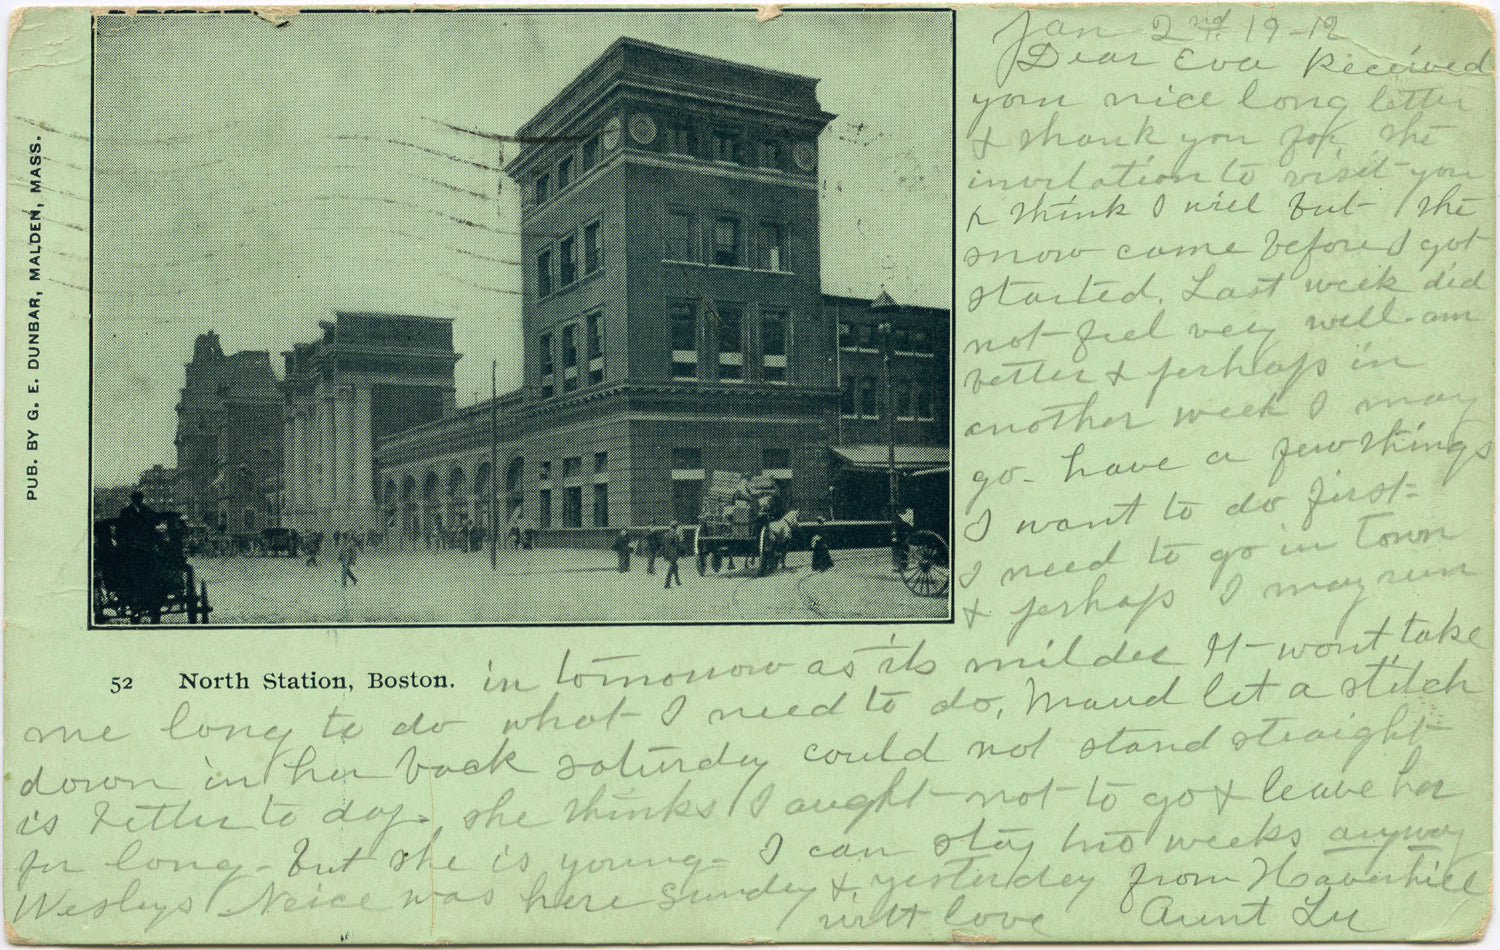 PUB. BY G. E. DUNBAR, MALDEN, MASS.
Jan 2nd 19-12
Dear Eva Received
your nice long letter
& thank you for the
invitation to visit you
& think I will but the
snow came before I got
started. Last week did
not feel very well-am
better & perhaps in
another week I may
go- have a few things
I want to do first-
I need to go in town
& perhaps I may run
52 North Station, Boston.
in tomorrow as its milder It-wont take
me long to do what I need to do. Maud let a stitch
down in her back saturday could not stand straight
is better to day- she thinks I aught-not-to go & leave her
for long- but she is young- I can stay two weeks anyway
Wesleys Neice was here Sunday & yesterday from Haverhill
with love Aunt Lu